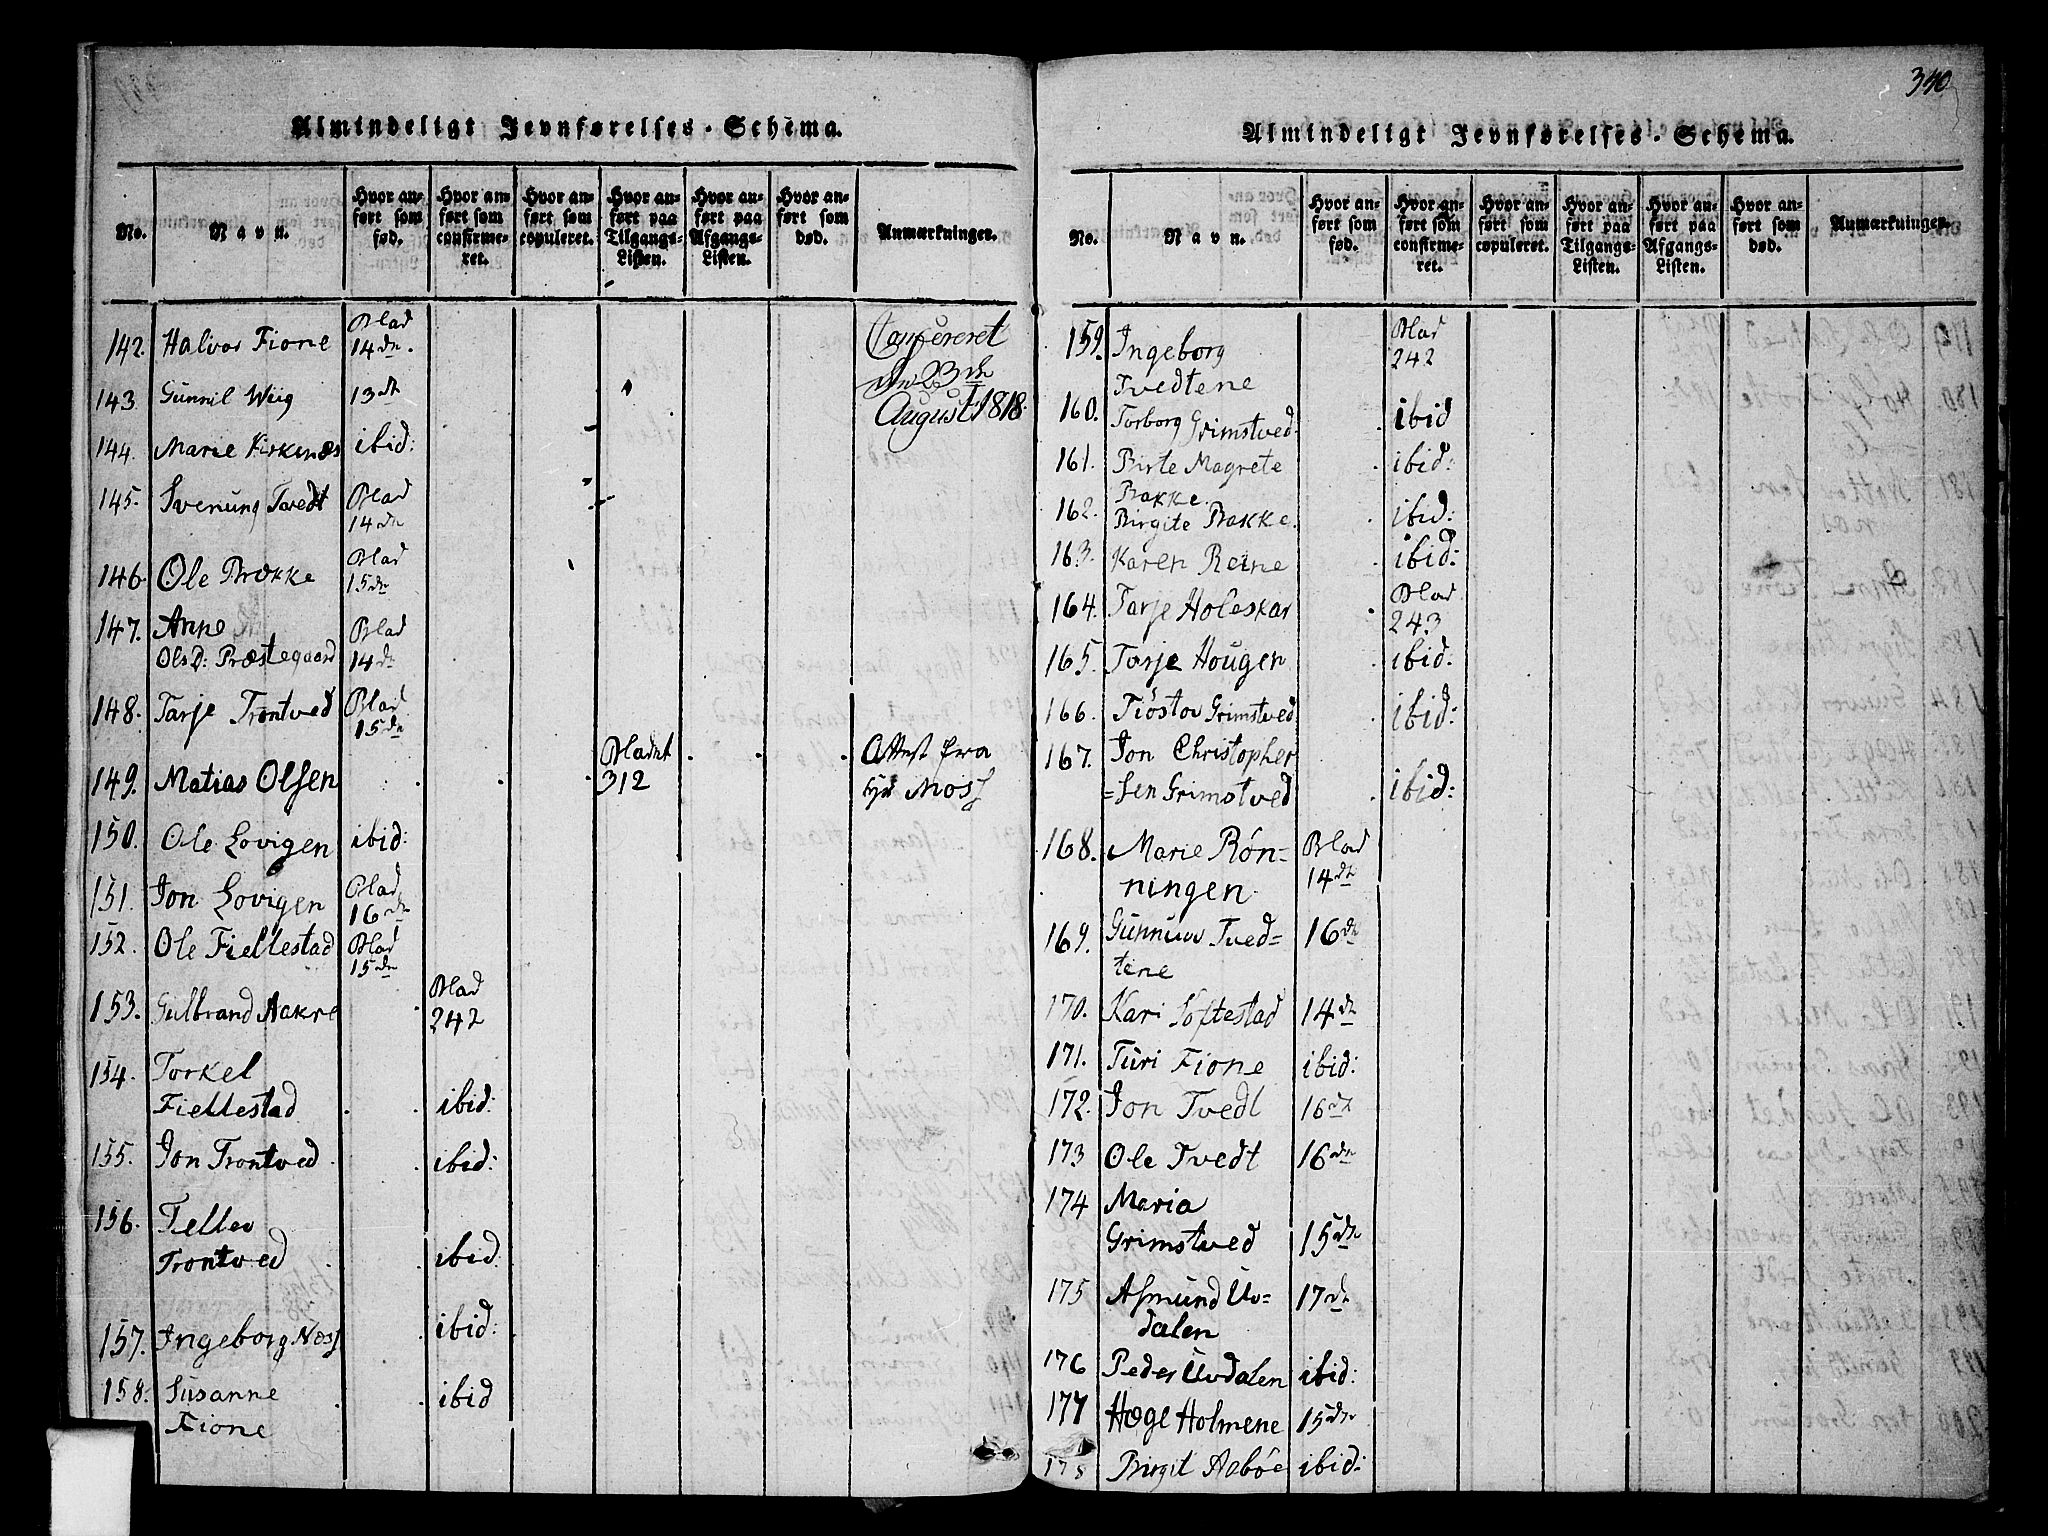 Almindeligt Jevnførelses-Schema.
No.
Navn.
Hvor anført som fød.
Hvor anført som confirmeret.
Hvor anført som copuleret.
Hvor anført paa Tilgangs-Listen.
Hvor anført paa Afgangs-Listen.
Hvor anført som død.
Anmærkninger.
142. Halvor Fione Blad 14de. Confereret den 23de August 1818.
143. Gunnil Wiig 13de
144. Marie Kirkenæs ibid:
145. Svenung Tvedt Blad 14de
146. Ole Brække Blad 15de
147. Anne
Olsd: Præstegaard Blad 14de
148. Tarje Trontved Blad 15de
149. Matias Olsen Bladet 312 Attest fra Moss
150. Ole Lovigen ibid:
151. Jon Lovigen Blad 16de
152. Ole Fiellestad Blad 15de
153. Gulbrand Aakre Blad 242
154. Torkel
Fiellestad ibid:
155. Jon Trontved ibid:
156. Tellev
Trontved ibid
157. Ingeborg Næss ibid:
158. Susanne
Fione ibid
340
Almindeligt Jevnførelses-Schema.
No.
Navn.
Hvor anført som fød.
Hvor anført som confirmeret.
Hvor anført som copuleret.
Hvor anført paa Tilgangs-Listen.
Hvor anført paa Afgangs-Listen.
Hvor anført som død.
Anmærkninger.
159. Ingeborg
Tvedtene Blad 242
160. Torborg Grimstved. ibid
161. Birte Magrete
Bakke. ibid:
162. Birgite Bakke. ibid:
163. Karen Reine ibid:
164. Tarje Holeskar Blad 243
165. Tarje Hougen ibid:
166. Tiöstov Grimstved ibid:
167. Jon Christopher
=sen Grimstved ibid:
168. Marie Røn=
ningen Blad 14de
169. Gunnuv Tved=
tene 16de
170. Kari Softestad 14de
171. Turi Fione ibid:
172. Jon Tvedt 16de
173 Ole Tvedt 16de
174 Maria
Grimstved 15de
175 Asmund Uv=
dalen 17de
176 Peder Uvdalen ibid:
177 Hæge Holmene 15de
178 Birgit Aabøe ibid: